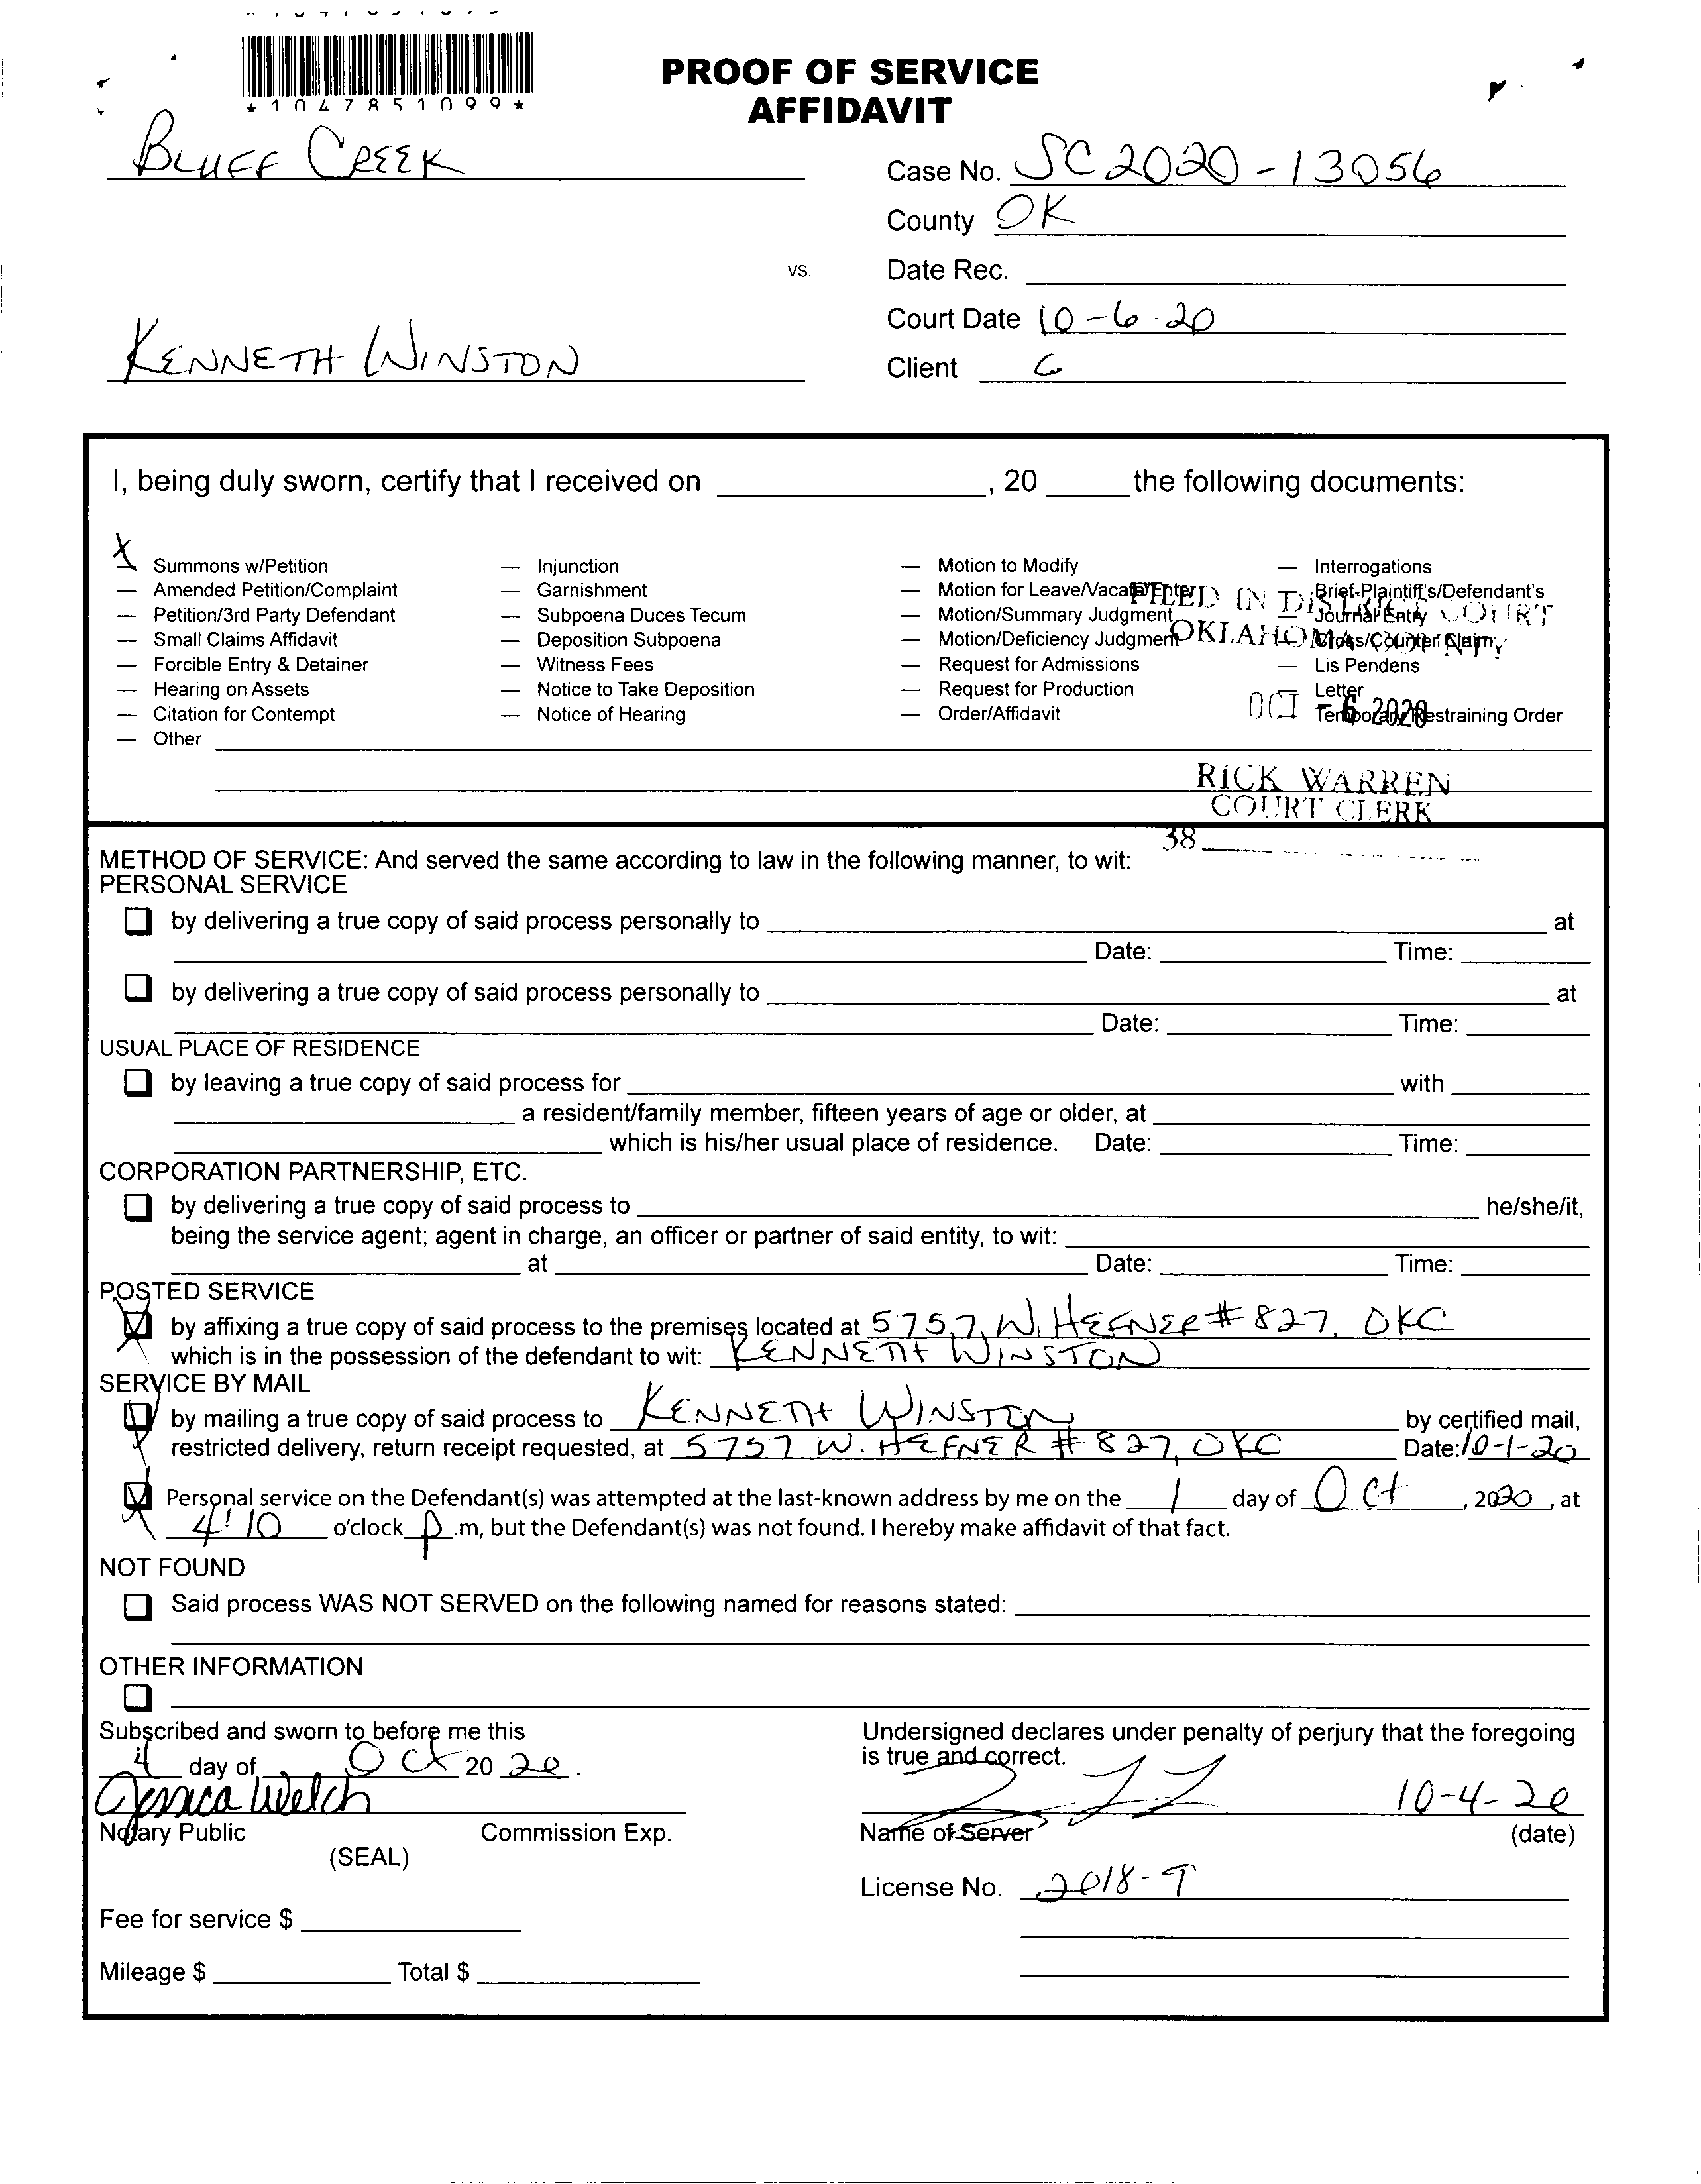 *1047851099*
PROOF OF SERVICE
AFFIDAVIT
BLUFF CREEK
Case No. SC2020-13056
County OK
vs.
Date Rec.
Court Date 10-6-20
KENNETH WINSTON
Client
I, being duly sworn, certify that I received on , 20 the following documents:
X Summons w/Petition
— Amended Petition/Complaint
— Petition/3rd Party Defendant
— Small Claims Affidavit
— Forcible Entry & Detainer
— Hearing on Assets
— Citation for Contempt
— Other
— Injunction
— Garnishment
— Subpoena Duces Tecum
— Deposition Subpoena
— Witness Fees
— Notice to Take Deposition
— Notice of Hearing
— Motion to Modify
— Motion for Leave/Vacate/Enter
— Motion/Summary Judgment
— Motion/Deficiency Judgment
— Request for Admissions
— Request for Production
— Order/Affidavit
— Interrogations
— Brief-Plaintiff's/Defendant's
— Journal Entry
— Cross/Counter Claim
— Lis Pendens
— Letter
— Temporary Restraining Order
FILED IN DISTRICT COURT
OKLAHOMA COUNTY
OCT - 6 2020
RICK WARREN
COURT CLERK
38
METHOD OF SERVICE: And served the same according to law in the following manner, to wit:
PERSONAL SERVICE
by delivering a true copy of said process personally to at
Date: Time:
by delivering a true copy of said process personally to at
Date: Time:
USUAL PLACE OF RESIDENCE
by leaving a true copy of said process for with
a resident/family member, fifteen years of age or older, at
which is his/her usual place of residence. Date: Time:
CORPORATION PARTNERSHIP, ETC.
by delivering a true copy of said process to he/she/it,
being the service agent; agent in charge, an officer or partner of said entity, to wit:
at Date: Time:
POSTED SERVICE
by affixing a true copy of said process to the premises located at 5757 W. HEFNER # 827, OKC
which is in the possession of the defendant to wit: KENNETH WINSTON
SERVICE BY MAIL
by mailing a true copy of said process to KENNETH WINSTON by certified mail,
restricted delivery, return receipt requested, at 5757 W. HEFNER # 827, OKC Date: 10-1-20
Personal service on the Defendant(s) was attempted at the last-known address by me on the 1 day of Oct, 2020, at
4:10 o'clock p.m, but the Defendant(s) was not found. I hereby make affidavit of that fact.
NOT FOUND
Said process WAS NOT SERVED on the following named for reasons stated:
OTHER INFORMATION
Subscribed and sworn to before me this
4 day of Oct 20 20.
Jessica Welch
Notary Public Commission Exp.
(SEAL)
Fee for service $
Mileage $ Total $
Undersigned declares under penalty of perjury that the foregoing
is true and correct.
10-4-20
Name of Server (date)
License No. 2018-9